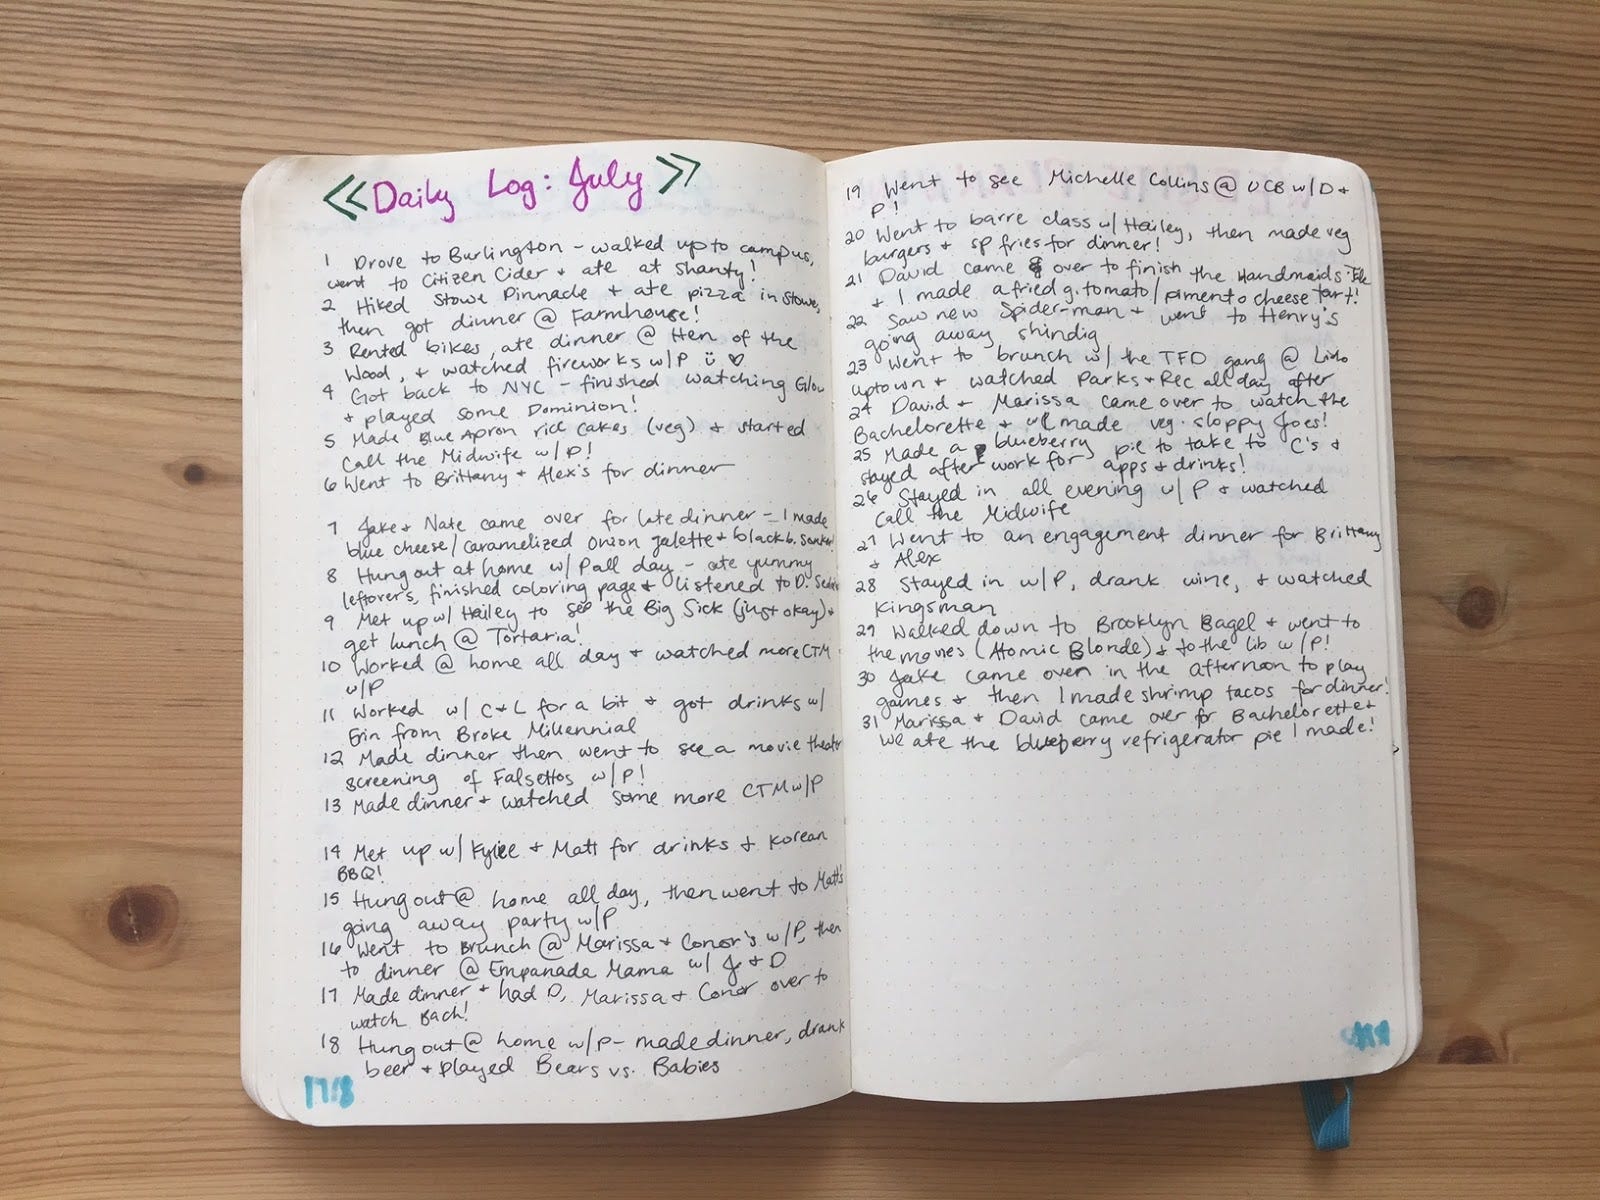 << Daily Log: July >>
1 Drove to Burlington - walked up to campus,
went to Citizen Cider + ate at Shanty!
2 Hiked Stowe Pinnacle + ate pizza in Stowe,
then got dinner @ Farmhouse!
3 Rented bikes, ate dinner @ Hen of the
Wood, + watched fireworks w/P ü ♡
4 Got back to NYC - finished watching Glow
+ played some Dominion!
5 Made Blue Apron rice cakes (veg) + started
Call the Midwife w/P!
6 Went to Brittany + Alex's for dinner
7 Jake + Nate came over for late dinner - I made
blue cheese/caramelized onion galette + black b. sonker!
8 Hung out at home w/ P all day - ate yummy
leftovers, finished coloring page + listened to D.
9 Met up w/ Hailey to see the Big Sick (just okay) +
get lunch @ Tortaria!
10 Worked @ home all day + watched more CTM
w/P
11 Worked w/ C+L for a bit + got drinks w/
Erin from Broke Millennial
12 Made dinner then went to see a movie theater
screening of Falsettos w/P!
13 Made dinner + watched some more CTM w/P
14 Met up w/ Kylee + Matt for drinks + Korean
BBQ!
15 Hung out @ home all day, then went to Matt's
going away party w/P
16 Went to Brunch @ Marissa + Conor's w/P, then
to dinner @ Empanada Mama w/ J + D
17 Made dinner + had D, Marissa + Conor over to
watch Bach!
18 Hung out @ home w/P - made dinner, drank
beer + played Bears vs. Babies
17/18
19 Went to see Michelle Collins @ UCB w/D +
P!
20 Went to barre class w/ Hailey, then made veg
burgers + sp fries for dinner!
21 David came over to finish the Handmaids Tale
+ I made a fried g. tomato/pimento cheese tart!
22 Saw new Spider-man + went to Henry's
going away shindig
23 Went to brunch w/ the TFD gang @ Lido
uptown + watched Parks + Rec all day after
24 David + Marissa came over to watch the
Bachelorette + we made veg. sloppy Joes!
25 Made a blueberry pie to take to C's +
stayed after work for apps + drinks!
26 Stayed in all evening w/ P + watched
Call the Midwife
27 Went to an engagement dinner for Brittany
+ Alex
28 Stayed in w/P, drank wine, + watched
Kingsman
29 Walked down to Brooklyn Bagel + went to
the movies (Atomic Blonde) + to the lib w/P!
30 Jake came over in the afternoon to play
games + then I made shrimp tacos for dinner!
31 Marissa + David came over for Bachelorette +
we ate the blueberry refrigerator pie I made!